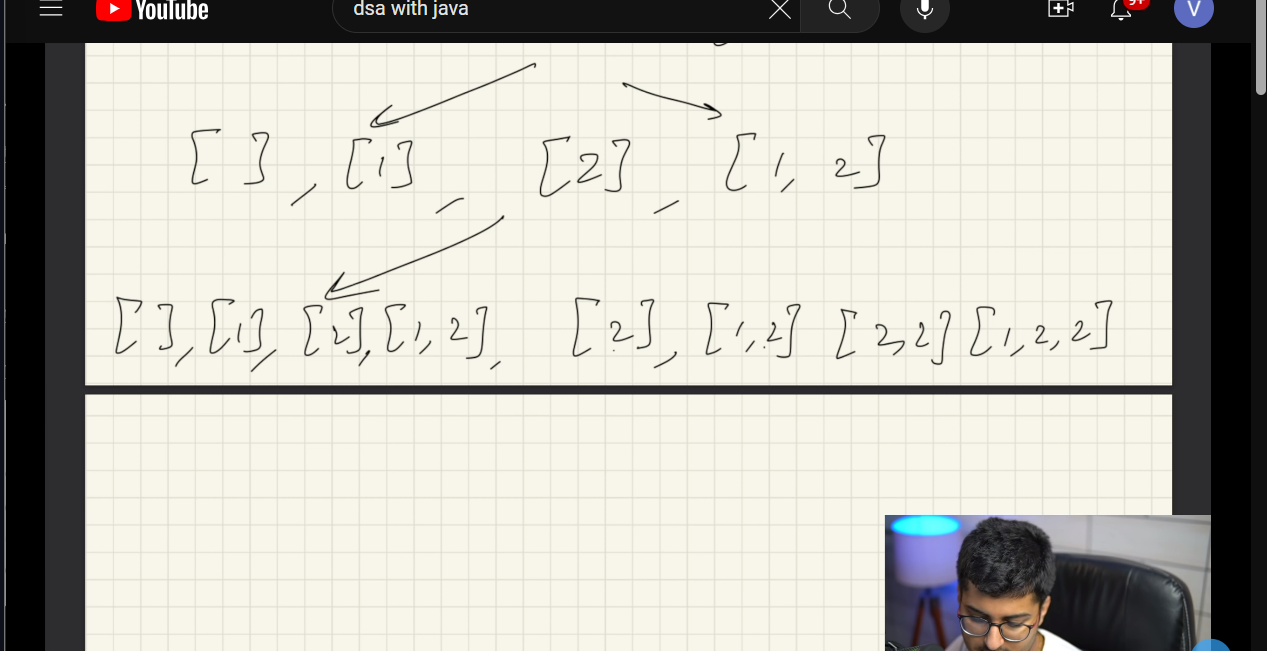 YouTube dsa with java 9+ V
[ ], [1], [2], [1, 2]
[ ], [1], [2], [1, 2], [2], [1,2] [2,2] [1,2,2]